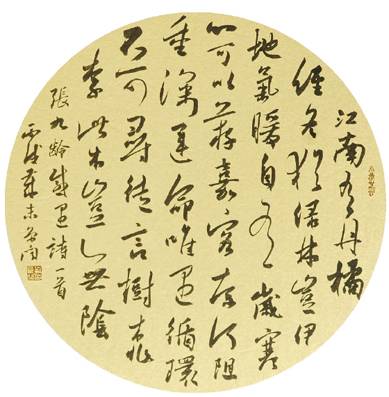 江南有丹橘
經冬猶綠林豈伊
地氣暖自有歲寒
心可以薦嘉客奈何阻
重深運命唯遇循環
不可尋徒言樹桃
李此木豈無陰
張九齡感遇詩一首